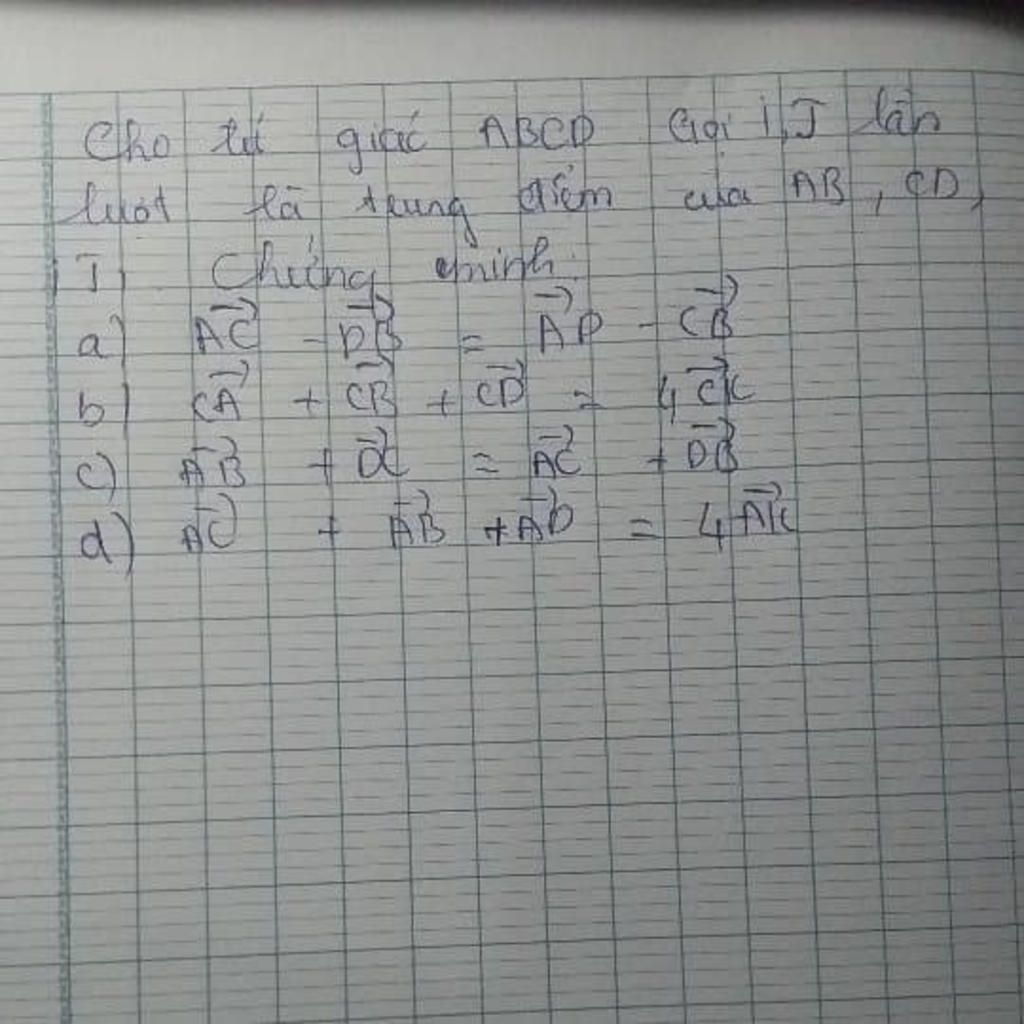 Cho tứ giác ABCD Gọi I, J lần
lượt là trung điểm của AB, CD,
IJ, Chứng minh.
a) \overrightarrow{AC} - \overrightarrow{DB} = \overrightarrow{AD} - \overrightarrow{CB}
b) \overrightarrow{CA} + \overrightarrow{CB} + \overrightarrow{CD} = 4\overrightarrow{CK}
c) \overrightarrow{AB} + \overrightarrow{DC} = \overrightarrow{AC} + \overrightarrow{DB}
d) \overrightarrow{AC} + \overrightarrow{AB} + \overrightarrow{AD} = 4\overrightarrow{AK}